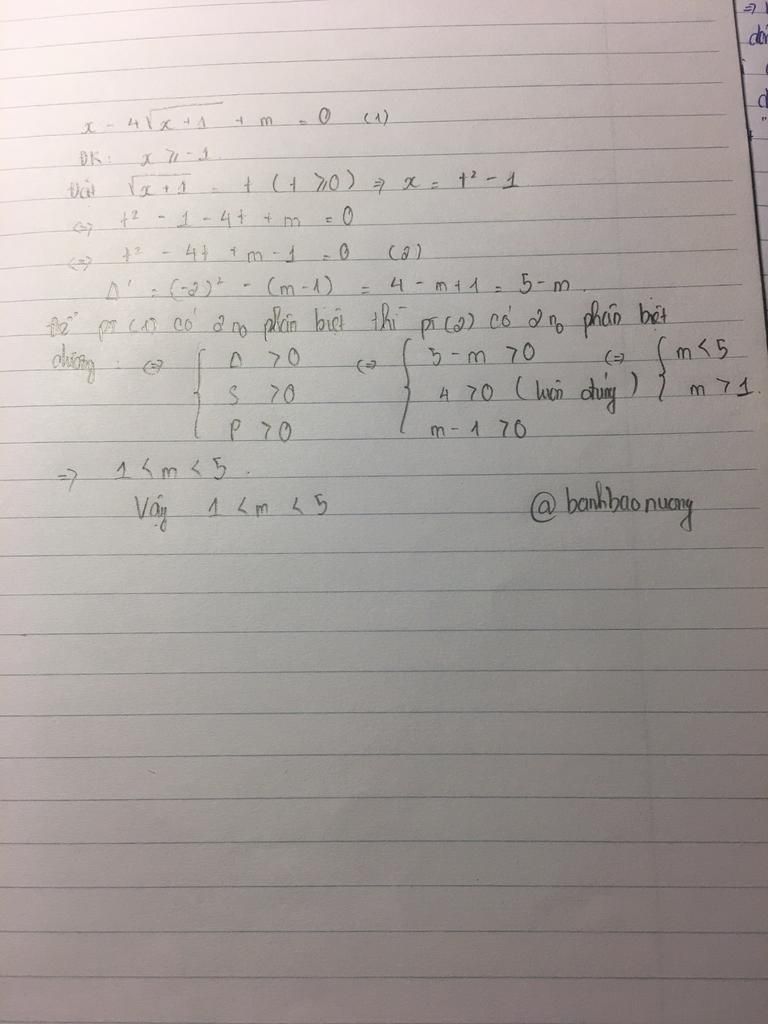 x - 4√(x+1) + m = 0 (1)
ĐK: x ≥ -1
Đặt √(x+1) = t (t ≥ 0) ⇒ x = t² - 1
⇔ t² - 1 - 4t + m = 0
⇔ t² - 4t + m - 1 = 0 (2)
Δ' = (-2)² - (m-1) = 4 - m + 1 = 5 - m.
Để pt (1) có 2 n₀ phân biệt thì pt (2) có 2 n₀ phân biệt
dương: ⇔ { Δ > 0 ⇔ { 5 - m > 0 ⇔ { m < 5
S > 0 4 > 0 (luôn đúng) m > 1.
P > 0 m - 1 > 0
⇒ 1 < m < 5.
Vậy 1 < m < 5 @banhbaonuong